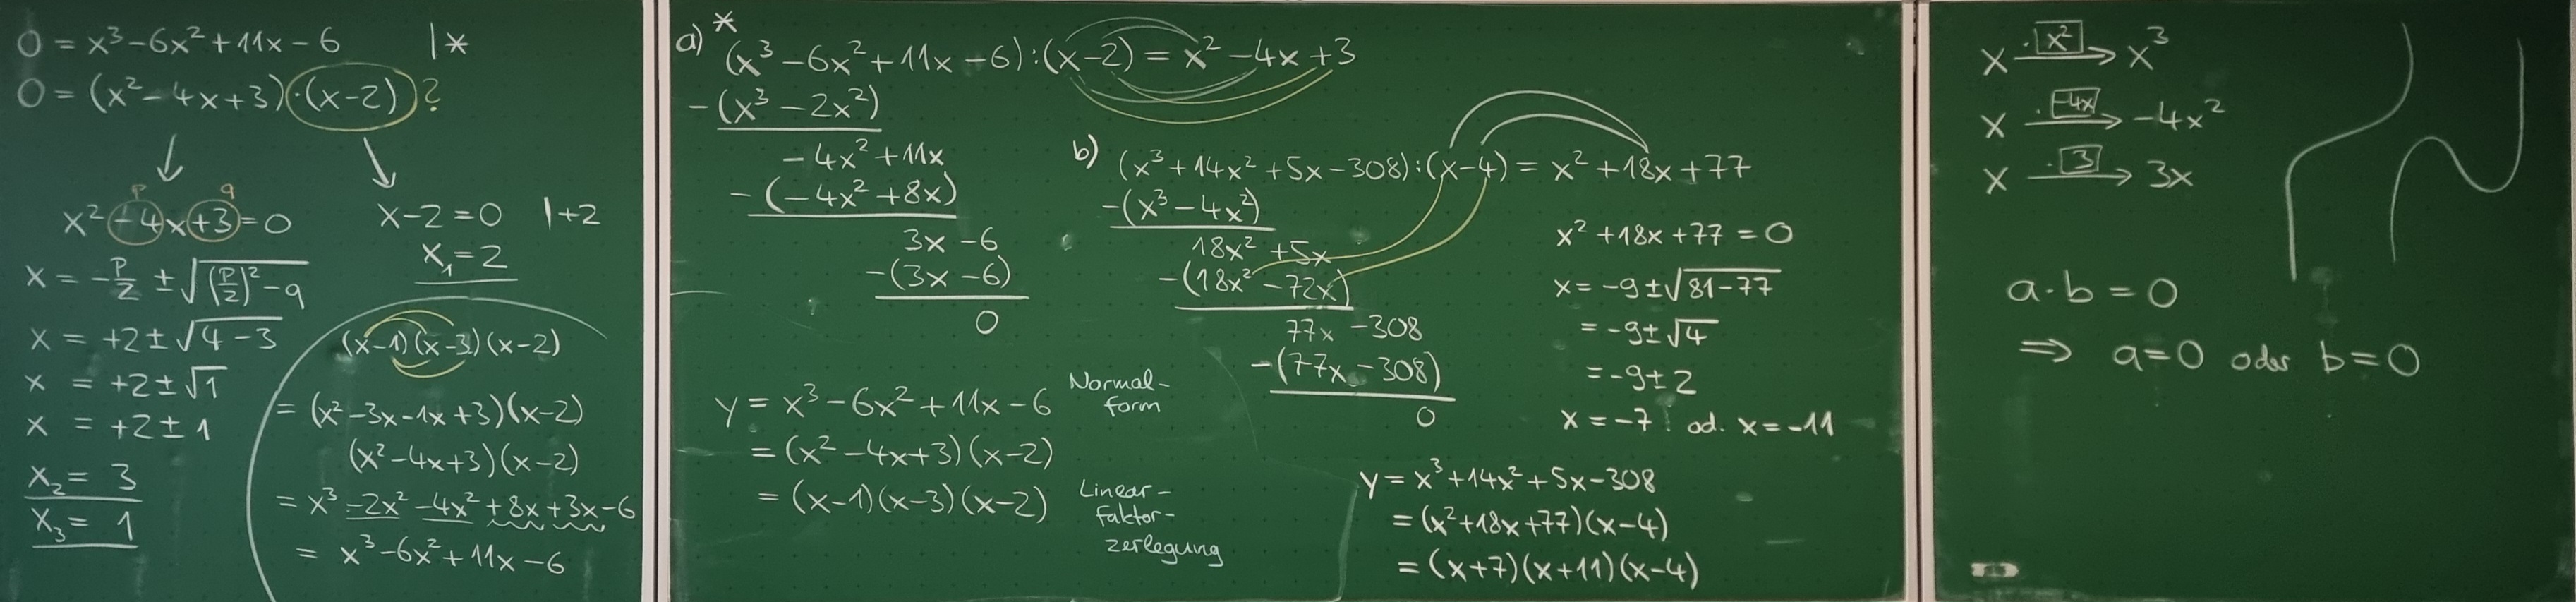 0 = x³ - 6x² + 11x - 6 | *
0 = (x² - 4x + 3) · (x - 2) ?
p q
x² - 4x + 3 = 0
x - 2 = 0 | +2
x₁ = 2
x = -p/2 ± √((p/2)² - q)
x = +2 ± √(4 - 3)
x = +2 ± √1
x = +2 ± 1
x₂ = 3
x₃ = 1
(x-1)(x-3)(x-2)
= (x² - 3x - 1x + 3)(x-2)
(x² - 4x + 3)(x-2)
= x³ - 2x² - 4x² + 8x + 3x - 6
= x³ - 6x² + 11x - 6
a) *
(x³ - 6x² + 11x - 6) : (x - 2) = x² - 4x + 3
-(x³ - 2x²)
-4x² + 11x
-(-4x² + 8x)
3x - 6
-(3x - 6)
0
y = x³ - 6x² + 11x - 6 Normal-
form
= (x² - 4x + 3)(x - 2)
= (x-1)(x-3)(x-2) Linear-
faktor-
zerlegung
b) (x³ + 14x² + 5x - 308) : (x - 4) = x² + 18x + 77
-(x³ - 4x²)
18x² + 5x
-(18x² - 72x)
77x - 308
-(77x - 308)
0
x² + 18x + 77 = 0
x = -9 ± √(81 - 77)
= -9 ± √4
= -9 ± 2
x = -7 od. x = -11
y = x³ + 14x² + 5x - 308
= (x² + 18x + 77)(x - 4)
= (x+7)(x+11)(x-4)
x · x² → x³
x · -4x → -4x²
x · 3 → 3x
a · b = 0
⇒ a = 0 oder b = 0